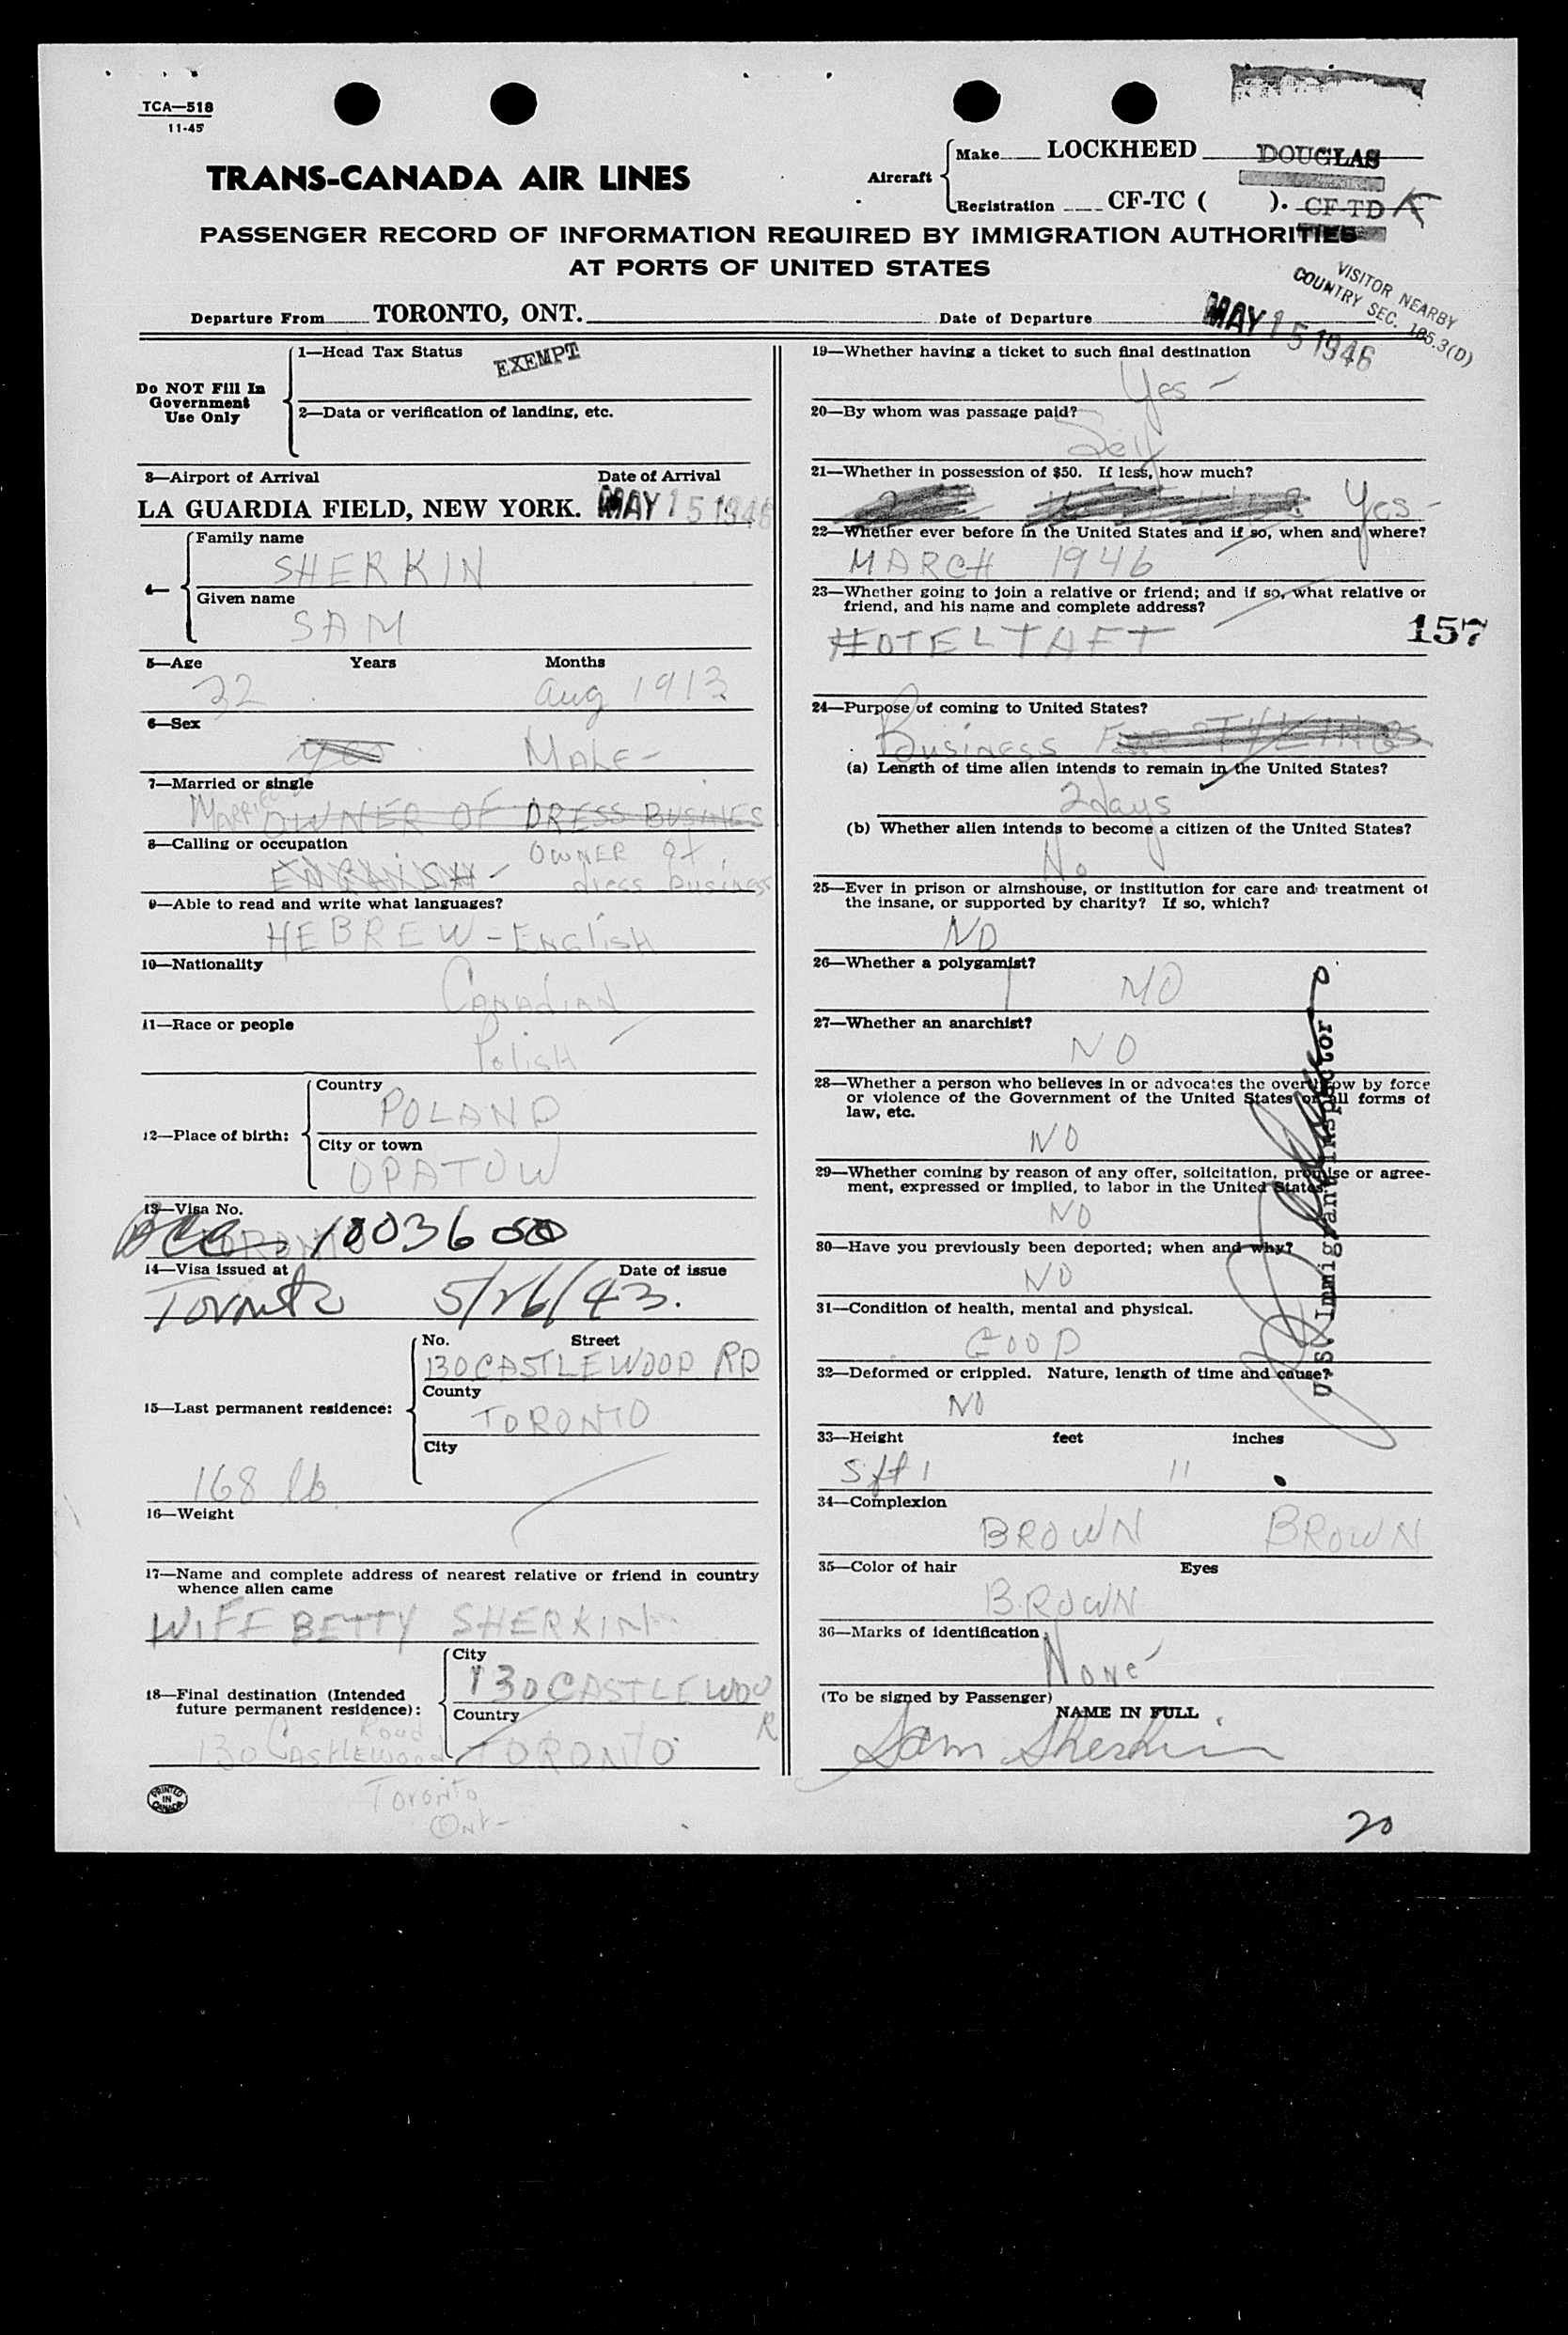 TCA—518
11-45
TRANS-CANADA AIR LINES
Aircraft
Make LOCKHEED DOUGLAS
Registration CF-TC ( ). CF-TD K
PASSENGER RECORD OF INFORMATION REQUIRED BY IMMIGRATION AUTHORITIES
AT PORTS OF UNITED STATES
VISITOR NEARBY
COUNTRY SEC. 165.3(D)
Departure From TORONTO, ONT. Date of Departure MAY 15 1946
Do NOT Fill In
Government
Use Only
1—Head Tax Status EXEMPT
2—Data or verification of landing, etc.
3—Airport of Arrival Date of Arrival
LA GUARDIA FIELD, NEW YORK. MAY 15 1946
4—
Family name
SHERKIN
Given name
SAM
5—Age Years Months
32 Aug 1913
6—Sex
yes Male -
7—Married or single
Married OWNER OF DRESS BUSINES
8—Calling or occupation
ENGLISH - OWNER of
dress business
9—Able to read and write what languages?
HEBREW - English
10—Nationality
Canadian
11—Race or people
Polish
12—Place of birth:
Country
POLAND
City or town
OPATOW
13—Visa No.
TORONTO 1003600
14—Visa issued at Date of issue
Toronto 5/26/43.
15—Last permanent residence:
No. Street
130 CASTLEWOOD RD
County
TORONTO
City
168 lb
16—Weight
17—Name and complete address of nearest relative or friend in country
whence alien came
WIFE BETTY SHERKIN
18—Final destination (Intended
future permanent residence):
City
130 CASTLEWOO
R
Country
TORONTO
Road
130 Castlewood
Toronto
Ont-
PRINTED
IN
CANADA
19—Whether having a ticket to such final destination
Yes -
20—By whom was passage paid?
Self
21—Whether in possession of $50. If less, how much?
Yes -
22—Whether ever before in the United States and if so, when and where?
MARCH 1946
23—Whether going to join a relative or friend; and if so, what relative or
friend, and his name and complete address?
HOTEL TAFT
157
24—Purpose of coming to United States?
Business FOR STYLINGS
(a) Length of time alien intends to remain in the United States?
2 days
(b) Whether alien intends to become a citizen of the United States?
No
25—Ever in prison or almshouse, or institution for care and treatment of
the insane, or supported by charity? If so, which?
NO
26—Whether a polygamist?
NO
27—Whether an anarchist?
NO
28—Whether a person who believes in or advocates the overthrow by force
or violence of the Government of the United States or all forms of
law, etc.
NO
29—Whether coming by reason of any offer, solicitation, promise or agree-
ment, expressed or implied, to labor in the United States?
NO
30—Have you previously been deported; when and why?
NO
31—Condition of health, mental and physical.
GOOD
32—Deformed or crippled. Nature, length of time and cause?
NO
U.S. Immigrant Inspector
33—Height feet inches
5ft 11
34—Complexion
BROWN BROWN
35—Color of hair Eyes
BROWN
36—Marks of identification
None
(To be signed by Passenger)
NAME IN FULL
Sam Sherkin
20